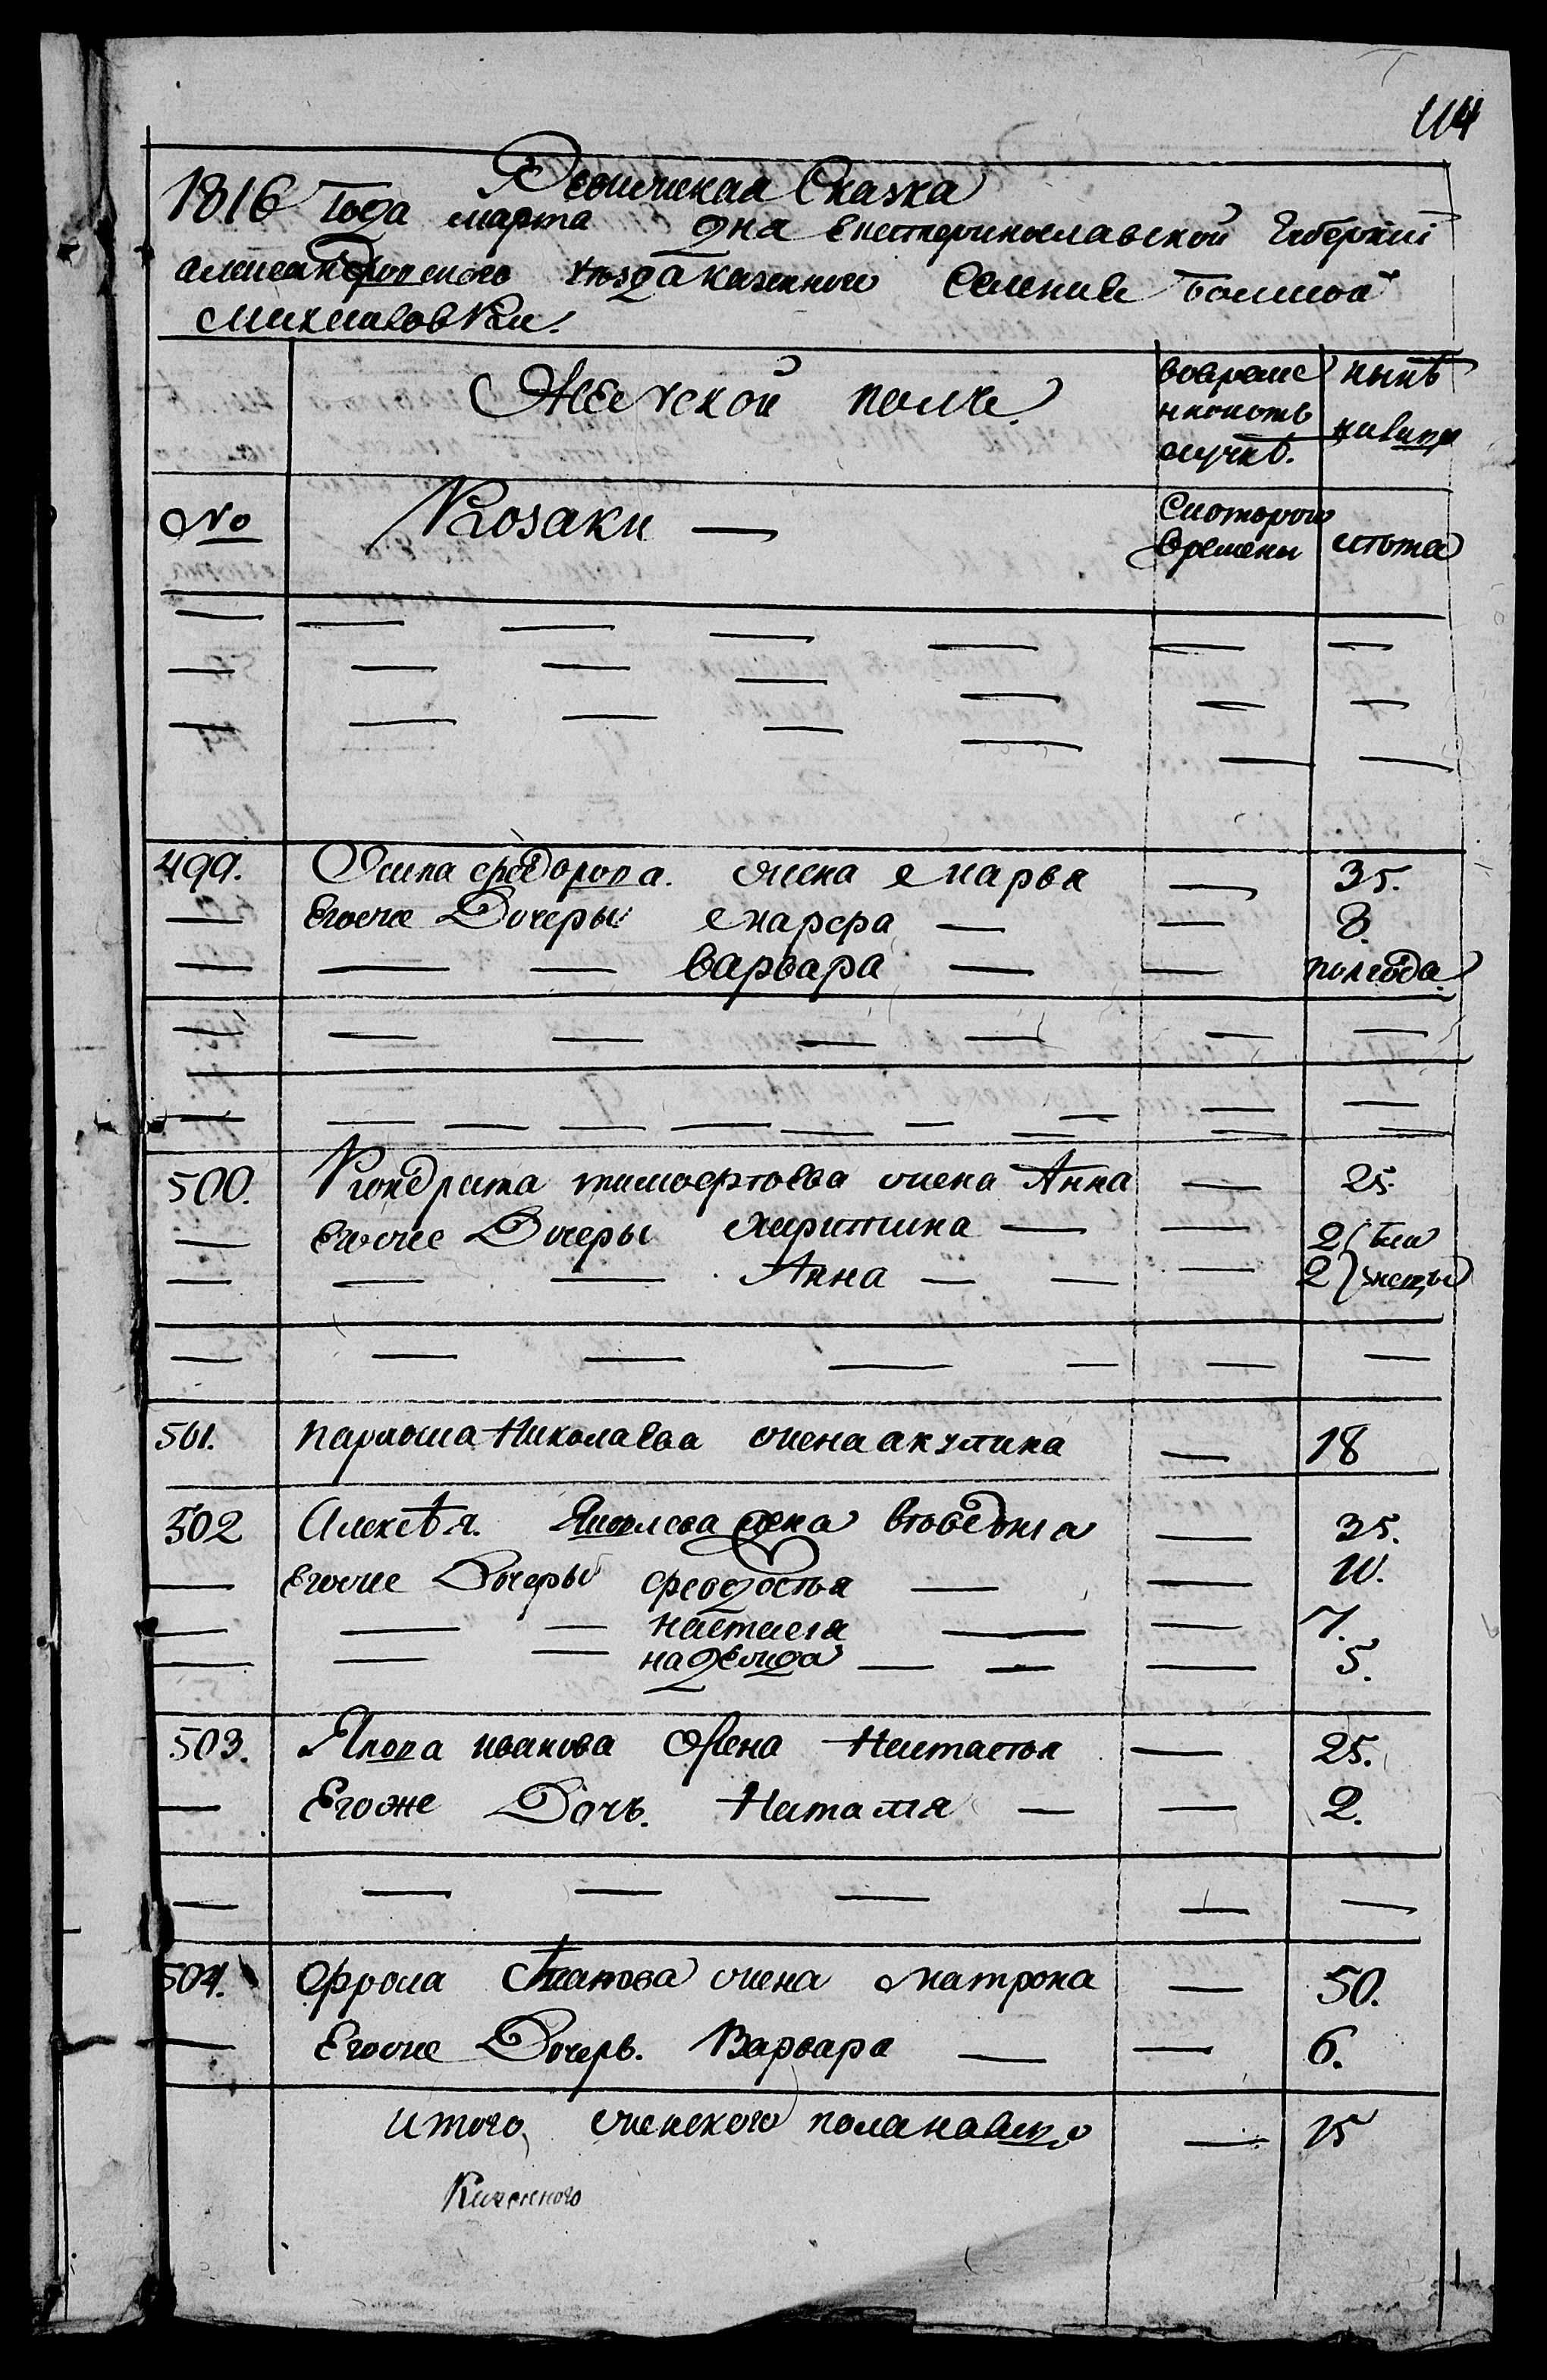 114
Ревижская Сказка
1816 Года марта дня Екатеринославской Губернии
александровского уѣзда казенного Селения Большой
михаиловки.
Женской полъ. вовремѣнной отлучкѣ. нынѣ налицо
№ Козаки — Скоторого времени лѣта
499. Осипа федорова. жена марья — 35.
— Егоже Дочеры марфа — — 8.
— — — варвара — — полгода.
500. Кондрата тимофѣева жена Анна — 25.
— Егоже Дочеры харитина — — 2 бли
— — — Анна — — — 2 знецы
501. пармона Николаева жена акулина — 18
502 Алексѣя. Яковлева жена — 35.
— Егоже Дочеры феодосья — — 10.
— — — настасия — — 7.
— — — надежда — — — 5.
503. Якова иванова Жена Настасья — 25.
— Егоже Дочь. Наталия — — 2.
504. Фрола жена матрона — 50.
— Егоже Дочерь. Варвара — — 6.
итого женского пола налицо — 15
Казенного